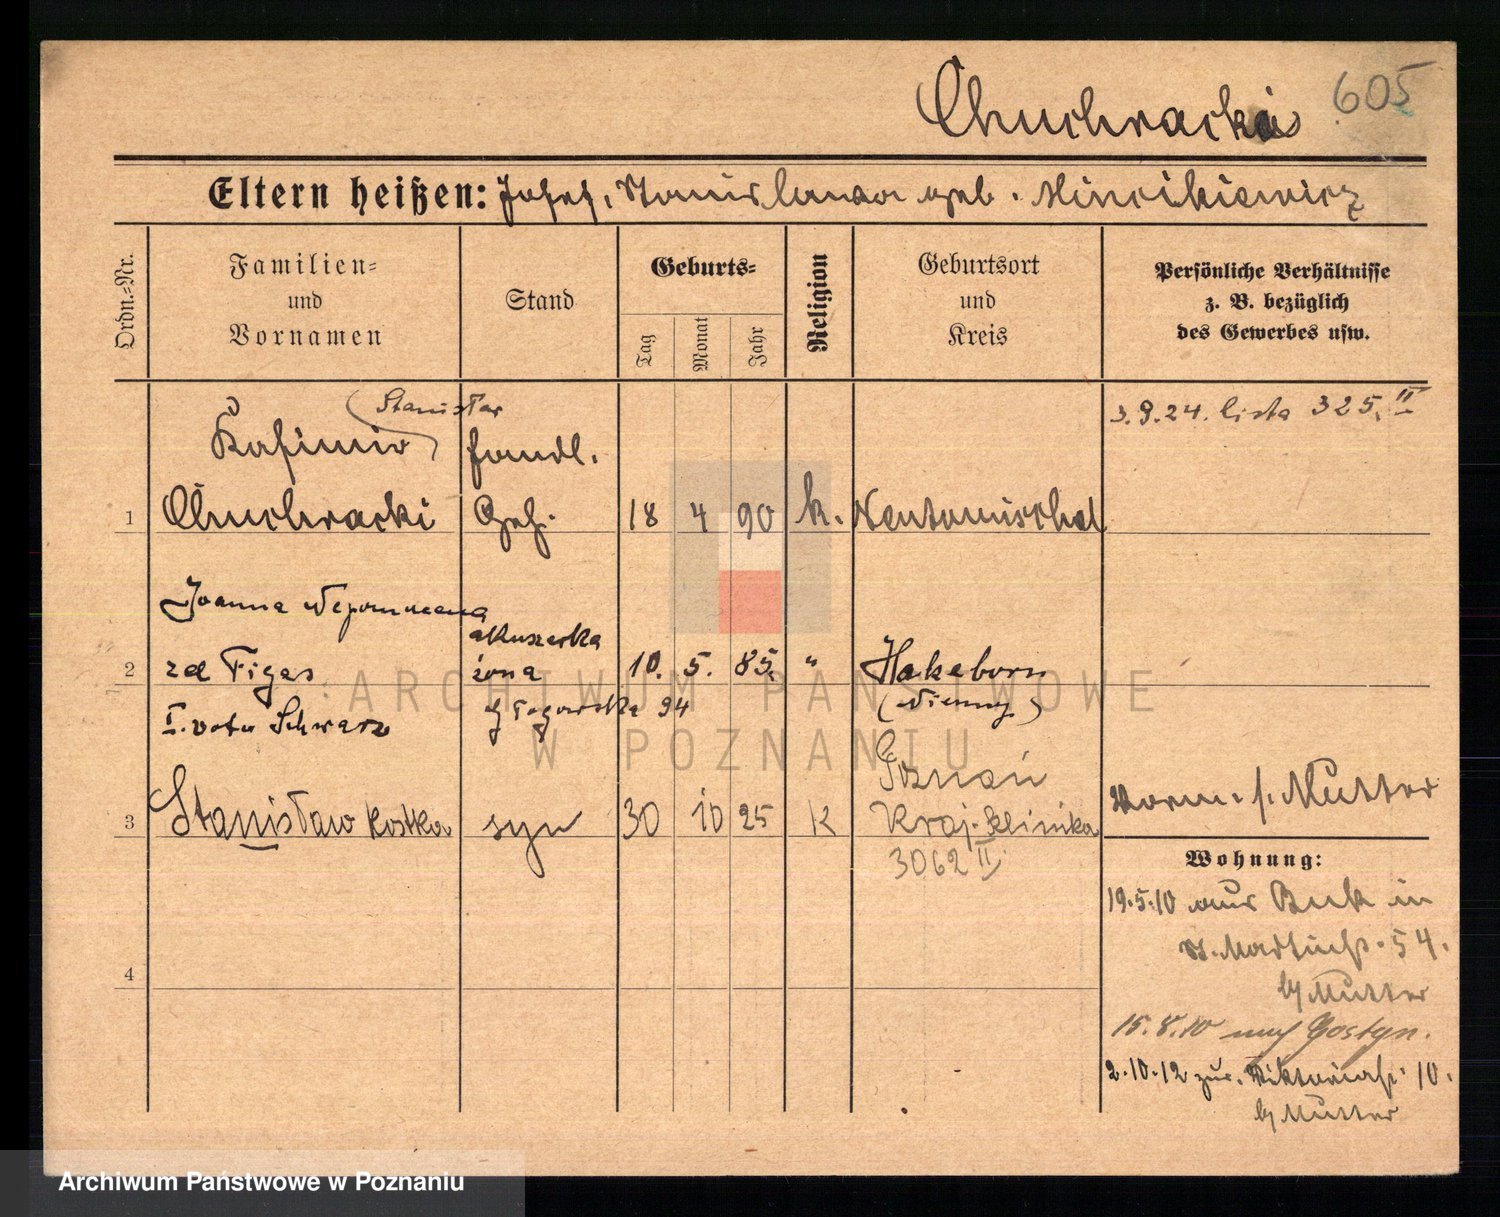 Chuchracki
605
Eltern heißen: Josef, Stanislawa geb. Mincikiewicz
Ordn.=Nr.
Familien=
und
Vornamen
Stand
Geburts=
Tag
Monat
Jahr
Religion
Geburtsort
und
Kreis
Persönliche Verhältnisse
z. B. bezüglich
des Gewerbes usw.
Stanisław
3.9.24. lista 325. II
Kasimir
handl.
1 Chuchracki Geh. 18 4 90 k. Neutomischel
Joanna Nepomucena
akuszerka
2 zd Figas żona 10. 5. 85. " Hakeborn
I. voto Schwarz Głogowska 94 (Niemcy)
Poznań
3 Stanisław Kostka syn 30 10 25 K Kraj. klinika
3062 II
Vorm. f. Mutter
Wohnung:
19.5.10 aus Buk in
54.
b/ Mutter
15.8.10 nach Gostyn.
2.10.12 zur. Viktoriastr. 10.
b/ Mutter
4
ARCHIWUM PAŃSTWOWE
W POZNANIU
Archiwum Państwowe w Poznaniu